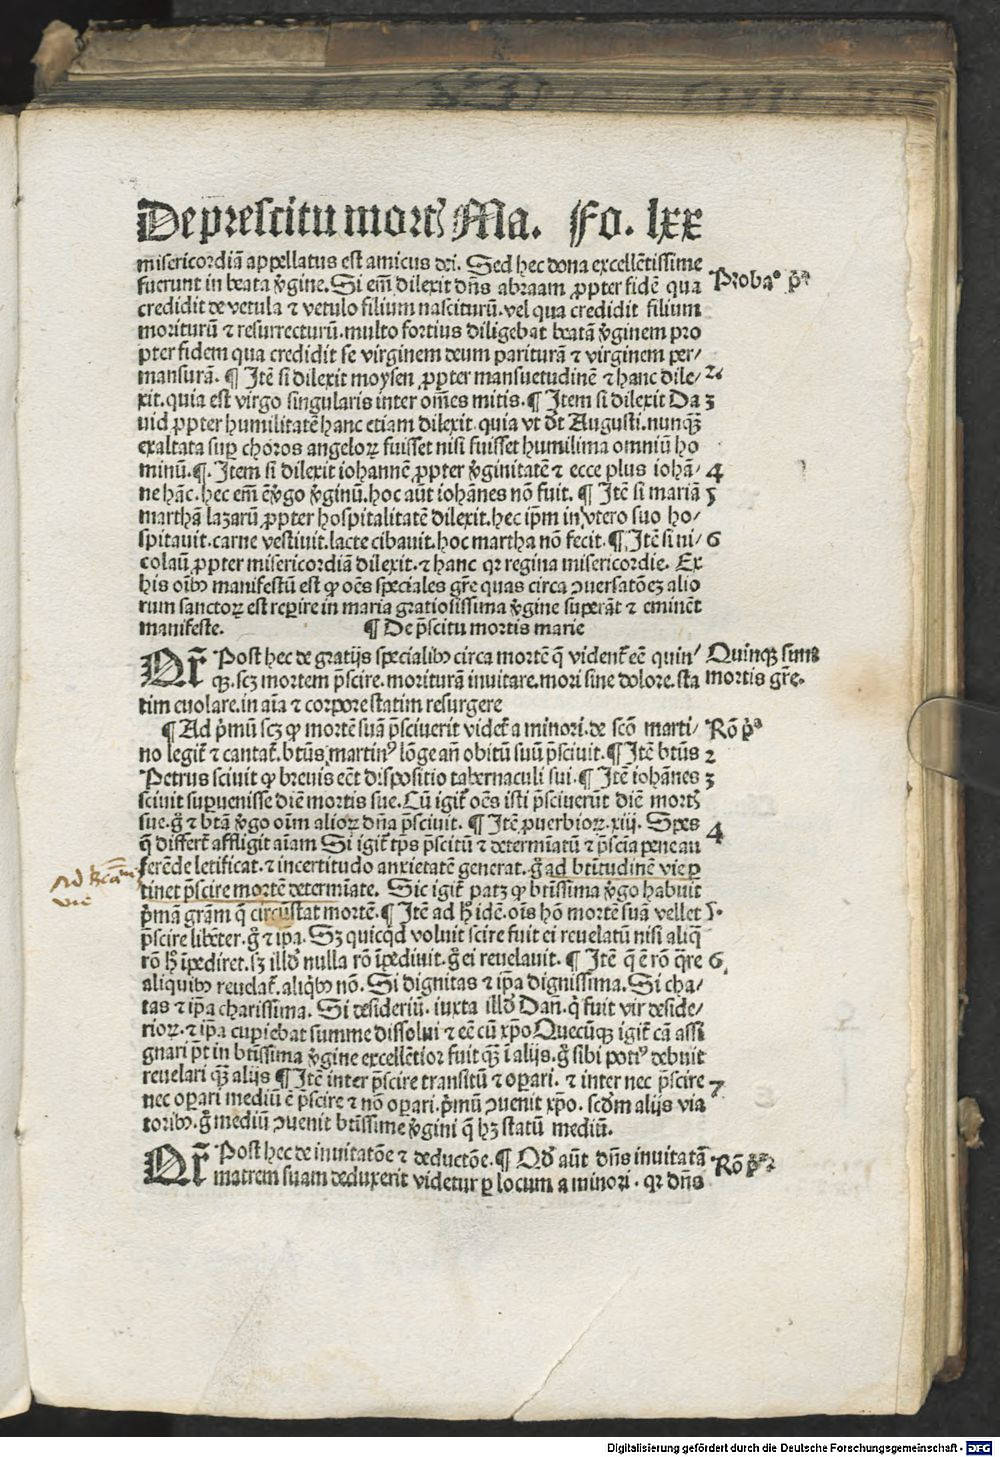 De prescitu mortꝭ Ma. Fo. lxx
misericordiā appellatus est amicus dei. Sed hec dona excellētissime
fuerunt in beata v̄gine. Si em̄ dilexit dn̄s abraam ꝓpter fidē qua
Probaº p̄ª
credidit de vetula ⁊ vetulo filium nasciturū. vel qua credidit filium
moriturū ⁊ resurrecturū. multo fortius diligebat beatā v̄ginem pro
pter fidem qua credidit se virginem deum pariturā ⁊ virginem per/
mansurā. ¶ Itē si dilexit moysen ꝓpter mansuetudinē ⁊ hanc dile/
2
xit. quia est virgo singularis inter om̄es mitis. ¶ Item si dilexit Da
3
uid ꝓpter humilitatē hanc etiam dilexit. quia vt dt̄ Augusti. nunqꝫ
exaltata suꝑ choros angeloꝝ fuisset nisi fuisset humilima omniū ho
minū. ¶. Item si dilexit iohannē ꝓpter v̄ginitatē ⁊ ecce plus iohā/
4
ne hāc. hec em̄ ē v̄go v̄ginū. hoc aūt iohānes nō fuit. ¶ Itē si mariā
5
marthā lazarū ꝓpter hospitalitatē dilexit. hec ip̄m in vtero suo ho/
spitauit. carne vestiuit. lacte cibauit. hoc martha nō fecit. ¶ Itē si ni/
6
colaū ꝓpter misericordiā dilexit. ⁊ hanc qꝛ regina misericordie. Ex
his oībꝫ manifestū est ꝙ oēs speciales gr̄e quas circa ꝯuersatōeꝫ alio
rum sanctoꝝ est reꝑire in maria gratiosissima v̄gine superāt ⁊ eminēt
manifeste. ¶ De p̄scitu mortis marie
QR̄ Post hec de gratijs specialibꝫ circa mortē q̄ vident̄ eē quin/
Quinqꝫ sunt
qꝫ. scꝫ mortem p̄scire. moriturā inuitare. mori sine dolore. sta
mortis gr̄e.
tim euolare. in aīa ⁊ corpore statim resurgere
¶ Ad p̄mū scꝫ ꝙ mortē suā p̄sciuerit videt̄ a minori. de scō marti/
Rō p̄ª
no legit̄ ⁊ cantat̄. bt̄us martinꝰ lōge an̄ obitū suū p̄sciuit. ¶ Itē bt̄us
2
Petrus sciuit ꝙ breuis eēt dispositio tabernaculi sui. ¶ Itē iohānes
3
sciuit suꝑuenisse diē mortis sue. Cū igit̄ oēs isti p̄sciuerūt diē mortꝭ
sue. g̊ ⁊ bt̄a v̄go oīm alioꝝ dn̄a p̄sciuit. ¶ Itē ꝓuerbioꝝ. xiij. Spes
4
q̄ differt̄ affligit aīam Si igit̄ tp̄s p̄scitū ⁊ determiatū ⁊ p̄scia pene au
ferēde letificat. ⁊ incertitudo anxietatē generat. g̊ ad bt̄itudinē vie ꝑ
tinet p̄scire mortē determīate. Sic igit̄ patꝫ ꝙ bt̄issima v̄go habuit
p̄mā grām q̄ circūstat mortē. ¶ Itē ad hͦ idē. oīs hō mortē suā vellet
5.
p̄scire libēter. g̊ ⁊ ipa. Sꝫ quicqͥd voluit scire fuit ei reuelatū nisi aliq̄
rō hͦ īpediret. sꝫ illdͦ nulla rō īpediuit. g̊ ei reuelauit. ¶ Itē q̄ ē rō q̄re
6
aliquibꝫ reuelat̄. aliqͥbꝫ nō. Si dignitas ⁊ ip̄a dignissima. Si cha/
tas ⁊ ip̄a charissima. Si desideriū. iuxta illdͦ Dan̄. qͥ fuit vir deside/
rioꝝ. ⁊ ip̄a cupiebat summe dissolui ⁊ eē cū xp̄o Quecūqꝫ igit̄ cā assi
gnari pt̄ in bt̄issima v̄gine excellētior fuit qꝫ ī alijs. g̊ sibi potiꝰ debuit
reuelari qꝫ alijs ¶ Itē inter p̄scire transitū ⁊ oꝑari. ⁊ inter nec p̄scire
7
nec oꝑari mediū ē p̄scire ⁊ nō oꝑari. p̄mū ꝯuenit xp̄o. scd̄m alijs via
toribꝫ. g̊ mediū ꝯuenit bt̄issime v̄gini q̄ hꝫ statū mediū.
QR̄ Post hec de inuitatōe ⁊ deductōe. ¶ Qd̄ aūt dn̄s inuitatā
Rō p̄ª
matrem suam deduxerit videtur ꝑ locum a minori. qꝛ dn̄s
Digitalisierung gefördert durch die Deutsche Forschungsgemeinschaft - DFG